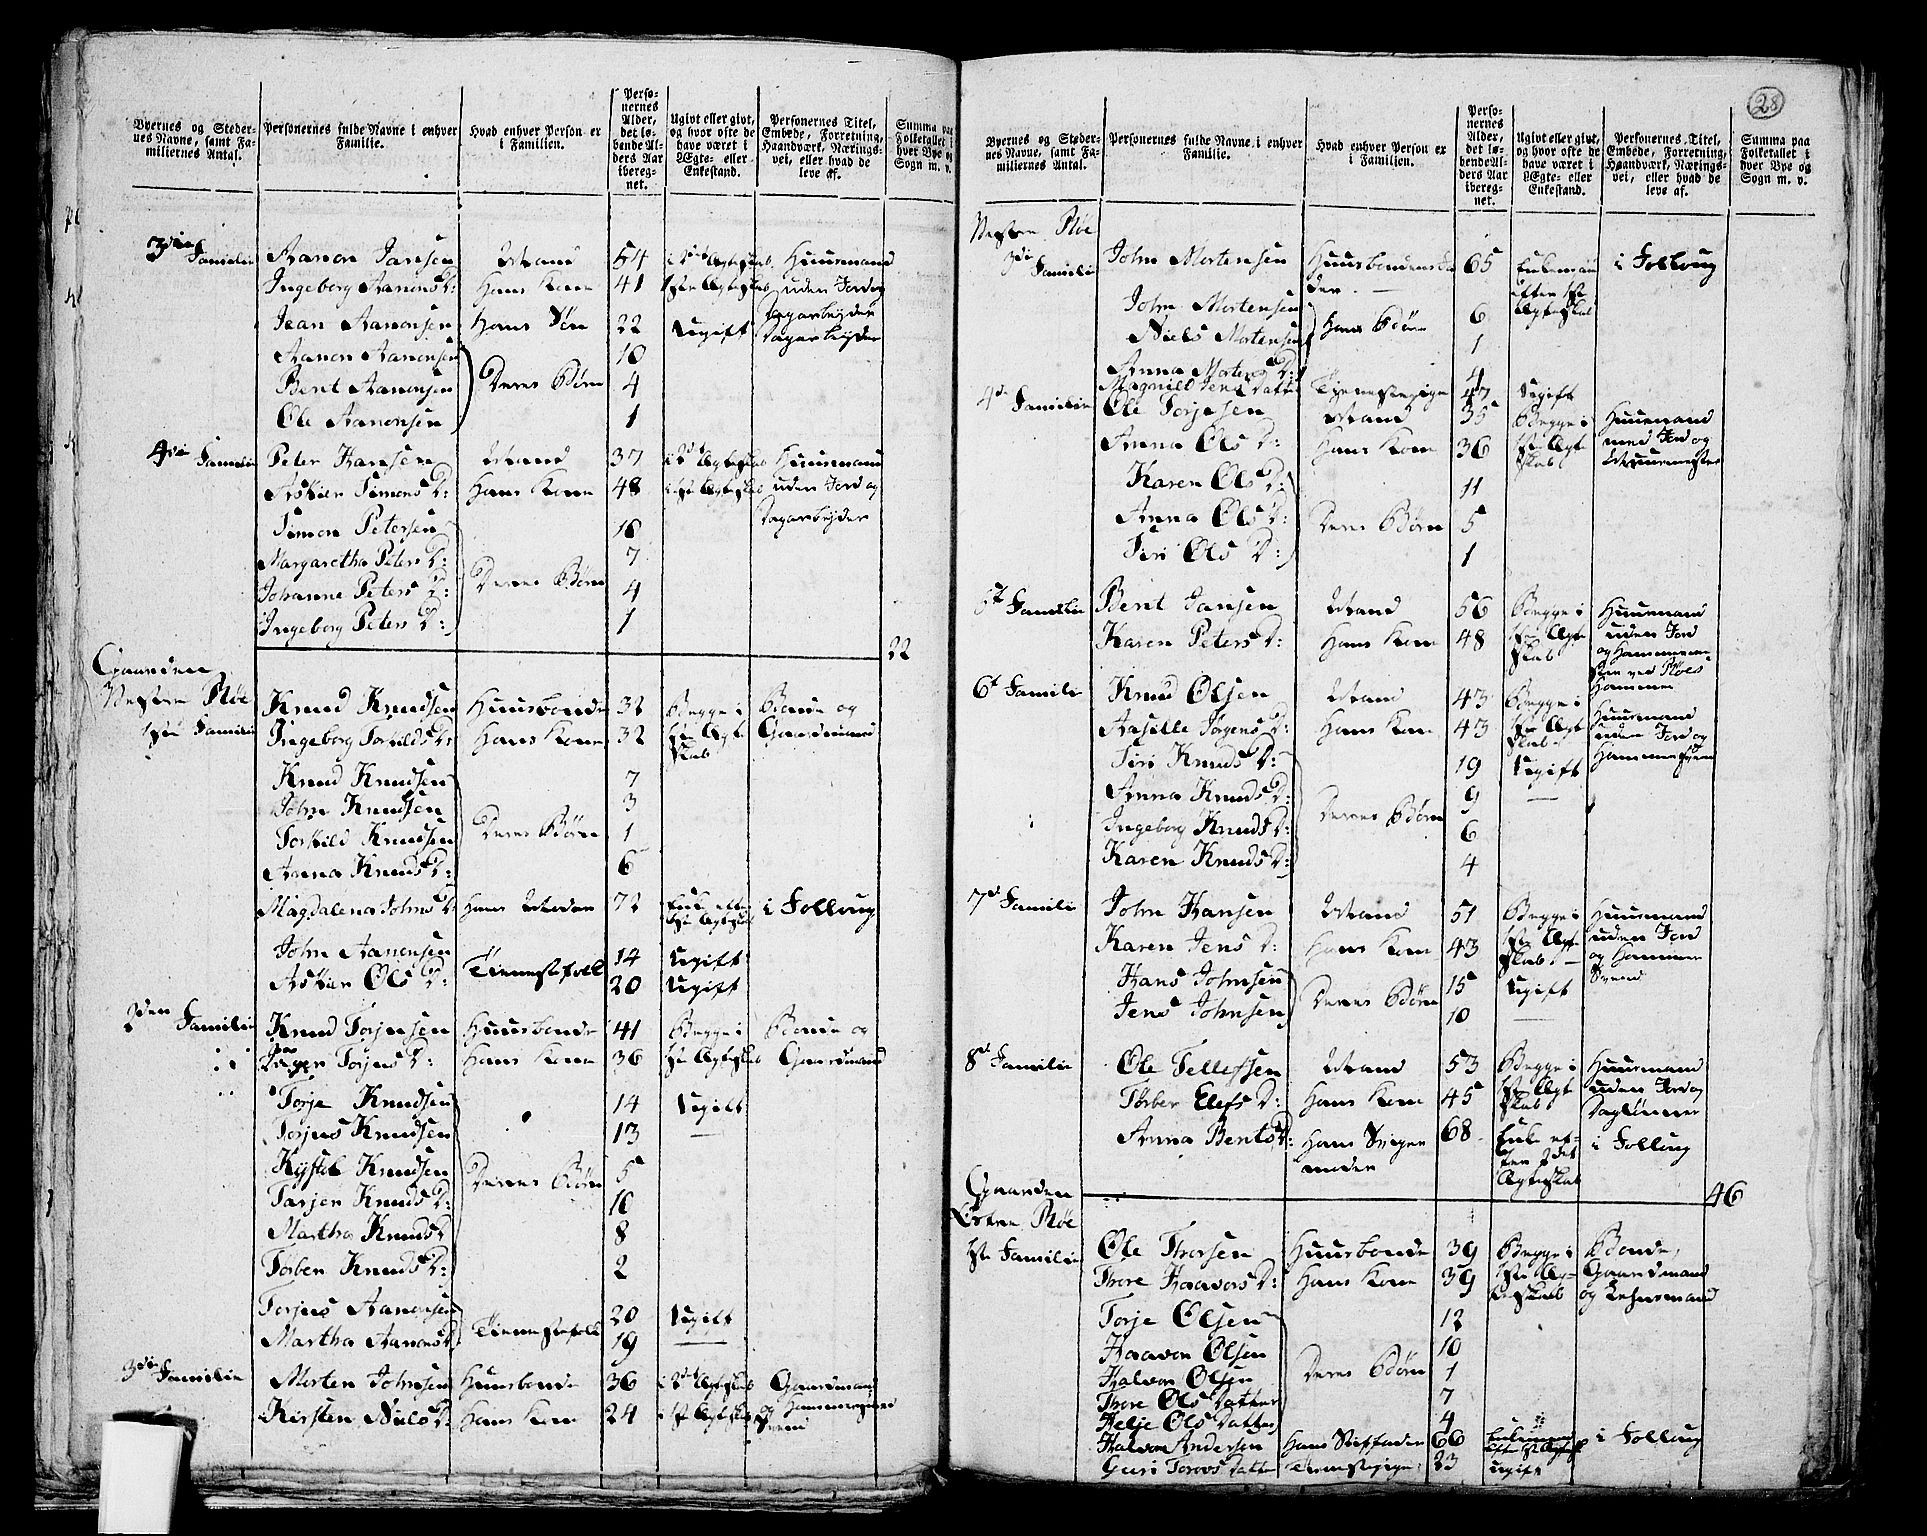 Byernes og Stedernes Navne, samt Familiernes Antal. | Personernes fulde Navne i enhver Familie. | Hvad enhver Person er i Familien. | Personernes Alder, det løbende Alders Aar iberegnet. | Ugivt eller givt, og hvor ofte de have været i Ægte- eller Enkestand. | Personernes Titel, Embede, Forretning, Haandværk, Næringsvei, eller hvad de leve af. | Summa paa Folketallet i hver Bye og Sogn m. v.
3die Familie | Aanon Jansen | Mand | 54 | i 2det Ægteskab | Huusmand
Ingeborg Aanons D: | Hans Kone | 41 | 1ste Ægteskab | uden Jord og
Jean Aanonsen | Hans Søn | 22 | Ugift | Dagarbejder
Aanon Aanonsen | 10
Bent Aanonsen | Deres Børn | 4
Ole Aanonsen | 1
4de Familie | Peter Hansen | Mand | 37 | i 2det Ægteskab | Huusmand
Askier Simons D: | Hans Kone | 48 | i 1ste Ægteskab | uden Jord og
Simon Petersen | 10 | Dagarbejder
Margaretha Peters D: | 7
Johanne Peters D: | Deres Børn | 4
Ingeborg Peters D: | 1
22
Gaarden
Vestre Røe | Knud Knudsen | Huusbonde | 32 | Begge i | Bonde og
1ste Familie | Ingeborg Torkilds D: | Hans Kone | 32 | 1ste Ægteskab | Gaardmand
Knud Knudsen | 7
John Knudsen | 3
Torkild Knudsen | Deres Børn | 1
Anna Knuds D: | 6
Magdalena Johns D: | Hans Moder | 72 | Enke efter 1ste Ægteskab | i Folloug
John Aanonsen | 14 | Ugift
Askier Ols D: | Tienestefolk | 20 | Ugift
2den Familie | Knud Torjusen | Huusbonde | 41 | Begge i | Bonde og
Inger Torjus D: | Hans Kone | 36 | 1ste Ægteskab | Gaardmand
Torje Knudsen | 14 | Ugift
Torjus Knudsen | 13
Kystel Knudsen | Deres Børn | 5
Tarjer Knuds D: | 10
Martha Knuds D | 8
Torber Knuds D: | 2
Torjus Aanonsen | 20 | Ugift
Martha Aanons D: | Tienestefolk | 19
3die Familie | Morten Johnsen | Huusbonde | 36 | i 2det Ægteskab | Gaardmand
Kirsten Niels D: | Hans Kone | 24 | i 1ste Ægteskab | og Hammersvend
28
Byernes og Stedernes Navne, samt Familiernes Antal. | Personernes fulde Navne i enhver Familie. | Hvad enhver Person er i Familien. | Personernes Alder, det løbende Alders Aar iberegnet. | Ugivt eller givt, og hvor ofte de have været i Ægte- eller Enkestand. | Personernes Titel, Embede, Forretning, Haandværk, Næringsvei, eller hvad de leve af. | Summa paa Folketallet i hver Bye og Sogn m. v.
Vestre Røe
3die Familie | John Mortensen | Huusbondens Fader | 65 | Enkemand efter 1ste Ægteskab | i Folloug
John Mortensen | 6
Niels Mortensen | Hans Børn | 1
Anna Mortens D: | 4
Magnild Jens Datter | Tienestepige | 47 | Ugift
4de Familie | Ole Torjusen | Mand | 35 | Begge i | Huusmand
Anna Ols D: | Hans Kone | 36 | 1ste Ægteskab | med Jord og Muurmester
Karen Ols D: | 11
Anna Ols D: | Deres Børn | 5
Siri Ols D: | 1
5te Familie | Bent Jansen | Mand | 56 | Begge i | Huusmand
Karen Peters D: | Hans Kone | 48 | 1ste Ægteskab | uden Jord
6te Famili | Knud Olsen | Mand | 43 | Begge i | Huusmand
Aasille Jørgens D: | Hans Kone | 43 | 1ste Ægteskab | uden Jord og
Siri Knuds D: | 19 | Ugift | Hammersvend
Anna Knuds D: | 9
Ingeborg Knuds D: | Deres Børn | 6
Karen Knuds D: | 4
7de Famili | John Hansen | Mand | 51 | Begge i | Huusmand
Karen Jens D: | Hans Kone | 43 | 1ste Ægteskab | uden Jord og Hammer
Hans Johnsen | 15 | Ugift | Svend
Jens Johnsen | Deres Børn | 10
8de Familie | Ole Tellefsen | Mand | 53 | Begge i | Huusmand
Torber Elefs D: | Hans Kone | 45 | 1ste Ægteskab | uden Jord og Daglønner
Anna Bents D: | Hans Svigermoder | 68 | Enke efter 2det Ægteskab | i Folloug
46
Gaarden
Østre Røe
1ste Familie | Ole Thorsen | Huusbonde | 39 | Begge i | Bonde,
Thore Haavors D: | Hans Kone | 39 | 1ste Ægteskab | Gaardmand og Lehnsmand
Torje Olsen | 12
Haavor Olsen | 10
Halvor Olsen | Deres Børn | 1
Thore Ols Datter | 7
Helje Ols Datter | 4
Halvor Andersen | Hans Stiffader | 66 | Enkemand efter 1ste Ægteskab | i Folloug
Guri Torovs Datter | Tienestepige | 23 | Ugift